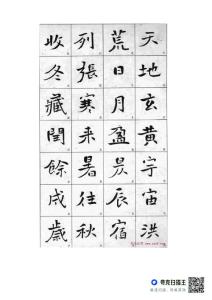 天地玄黄宇宙洪
荒日月盈昃辰宿
列張寒来暑往秋
收冬藏閏餘成歲
夸克扫描王